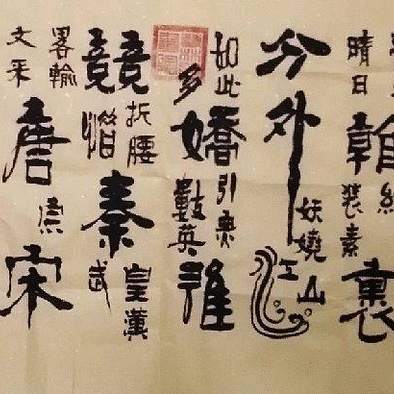 晴日看紅裝素裹
分外妖嬈江山
如此多嬌引無數英雄
競折腰惜秦皇漢武
畧輸文采唐宗宋